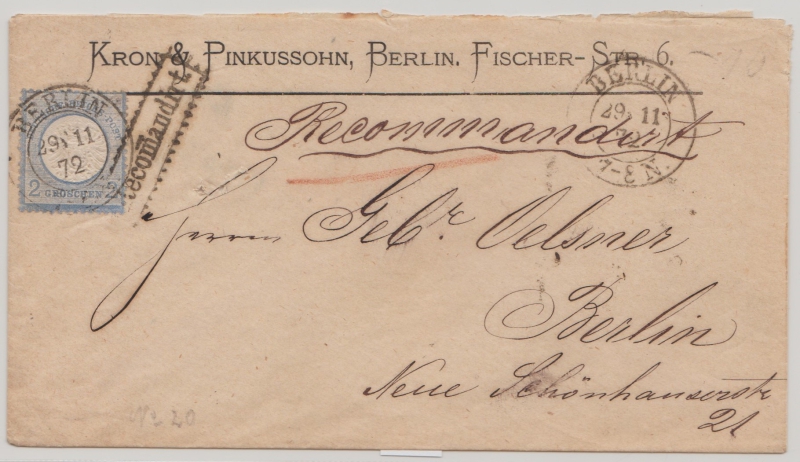 KRON & PINKUSSOHN, BERLIN. FISCHER-STR. 6.
BERLIN
29 11
72
2 GROSCHEN 2
Recomandirt.
BERLIN
29 11
72
7-8 N.
Recommandirt
Herrn Gebr. Oelsner
Berlin
Neue Schönhauserstr
21
No 20